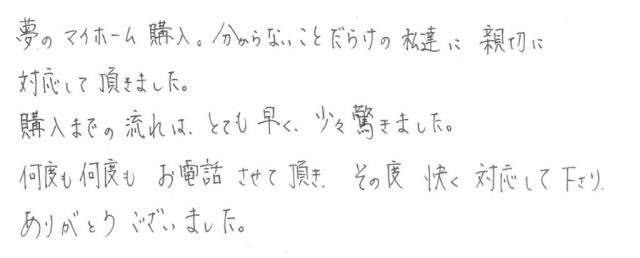 夢のマイホーム購入。分からないことだらけの私達に親切に
対応して頂きました。
購入までの流れは、とても早く、少々驚きました。
何度も何度もお電話させて頂き、その度快く対応して下さり、
ありがとうございました。